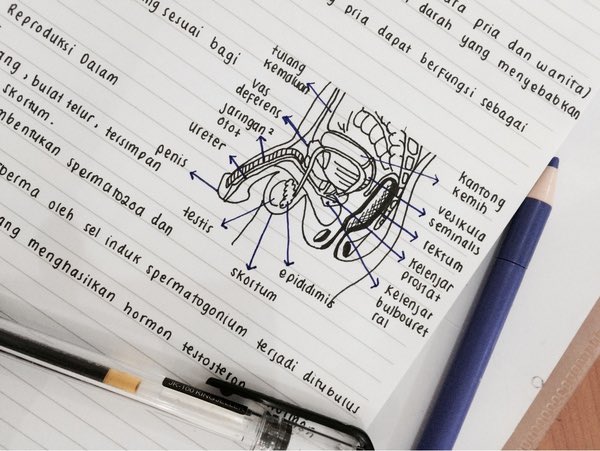 ara pria dan wanita)
darah yang menyebabkan
pria dapat berfungsi sebagai
ng sesuai bagi
Reproduksi Dalam
ang, bulat telur, tersimpan
skortum.
mbentukan spermatozoa dan
perma oleh sel induk spermatogonium terjadi ditubulus
ang menghasilkan hormon testosteron
tulang
kemaluan
vas
deferens
jaringan²
otot
ureter
penis
testis
skortum
epididimis
kantong
kemih
vesikula
seminalis
rektum
kelenjar
prostat
kelenjar
bulbouret
ral
JK-100 KING